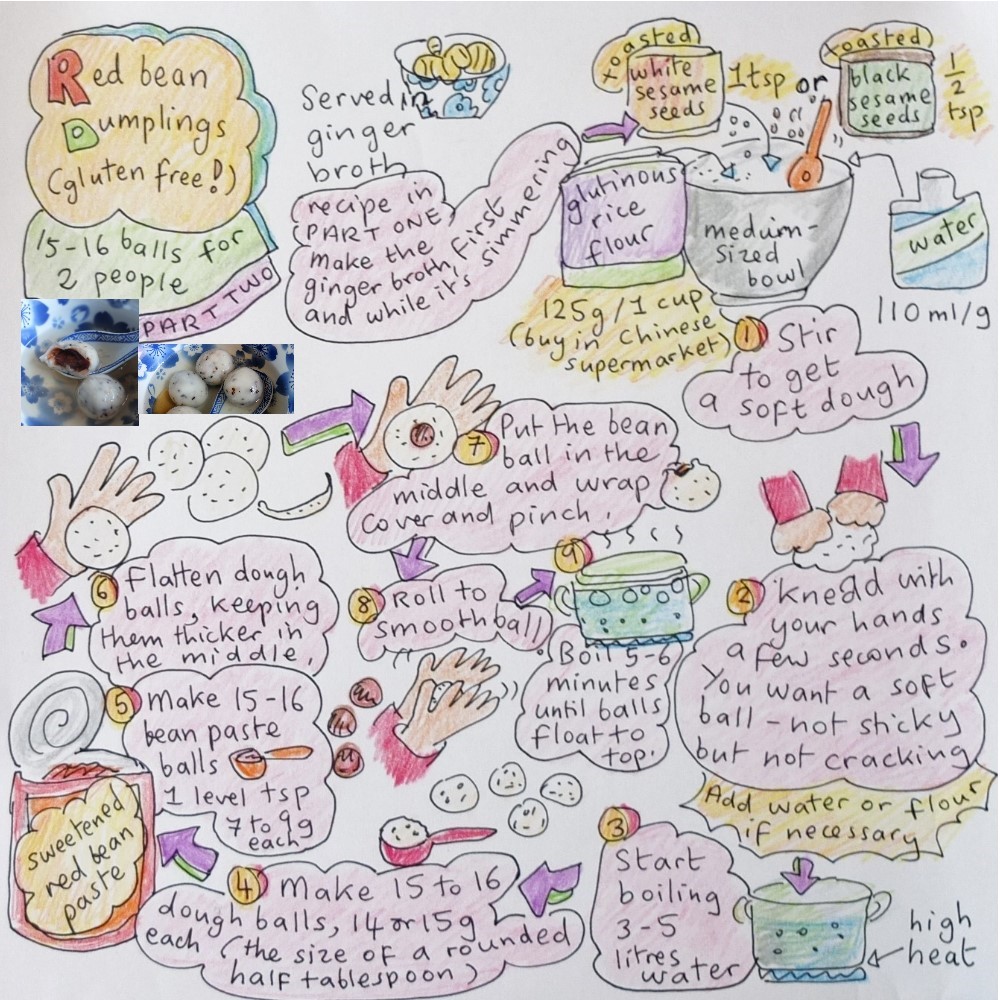 Red bean
Dumplings
(gluten free!)
15-16 balls for
2 people
PART TWO
Served in
ginger
broth
recipe in
PART ONE
make the
ginger broth first
and while it's simmering
toasted
white
sesame
seeds
1tsp or
toasted
black
sesame
seeds
1/2
tsp
glutinous
rice
flour
125g/1 cup
(buy in Chinese
supermarket)
medium-
sized
bowl
water
110ml/g
1 Stir
to get
a soft dough
2 Knead with
your hands
a few seconds.
You want a soft
ball - not sticky
but not cracking
Add water or flour
if necessary
3
Start
boiling
3-5
litres
water
high
heat
4 Make 15 to 16
dough balls, 14 or 15g
each (the size of a rounded
half tablespoon)
sweetened
red bean
paste
5 Make 15-16
bean paste
balls
1 level tsp
7 to 9g
each
6 Flatten dough
balls, keeping
them thicker in
the middle,
7 Put the bean
ball in the
middle and wrap
cover and pinch.
8 Roll to
smooth ball
9
Boil 5-6
minutes
until balls
float to
top.